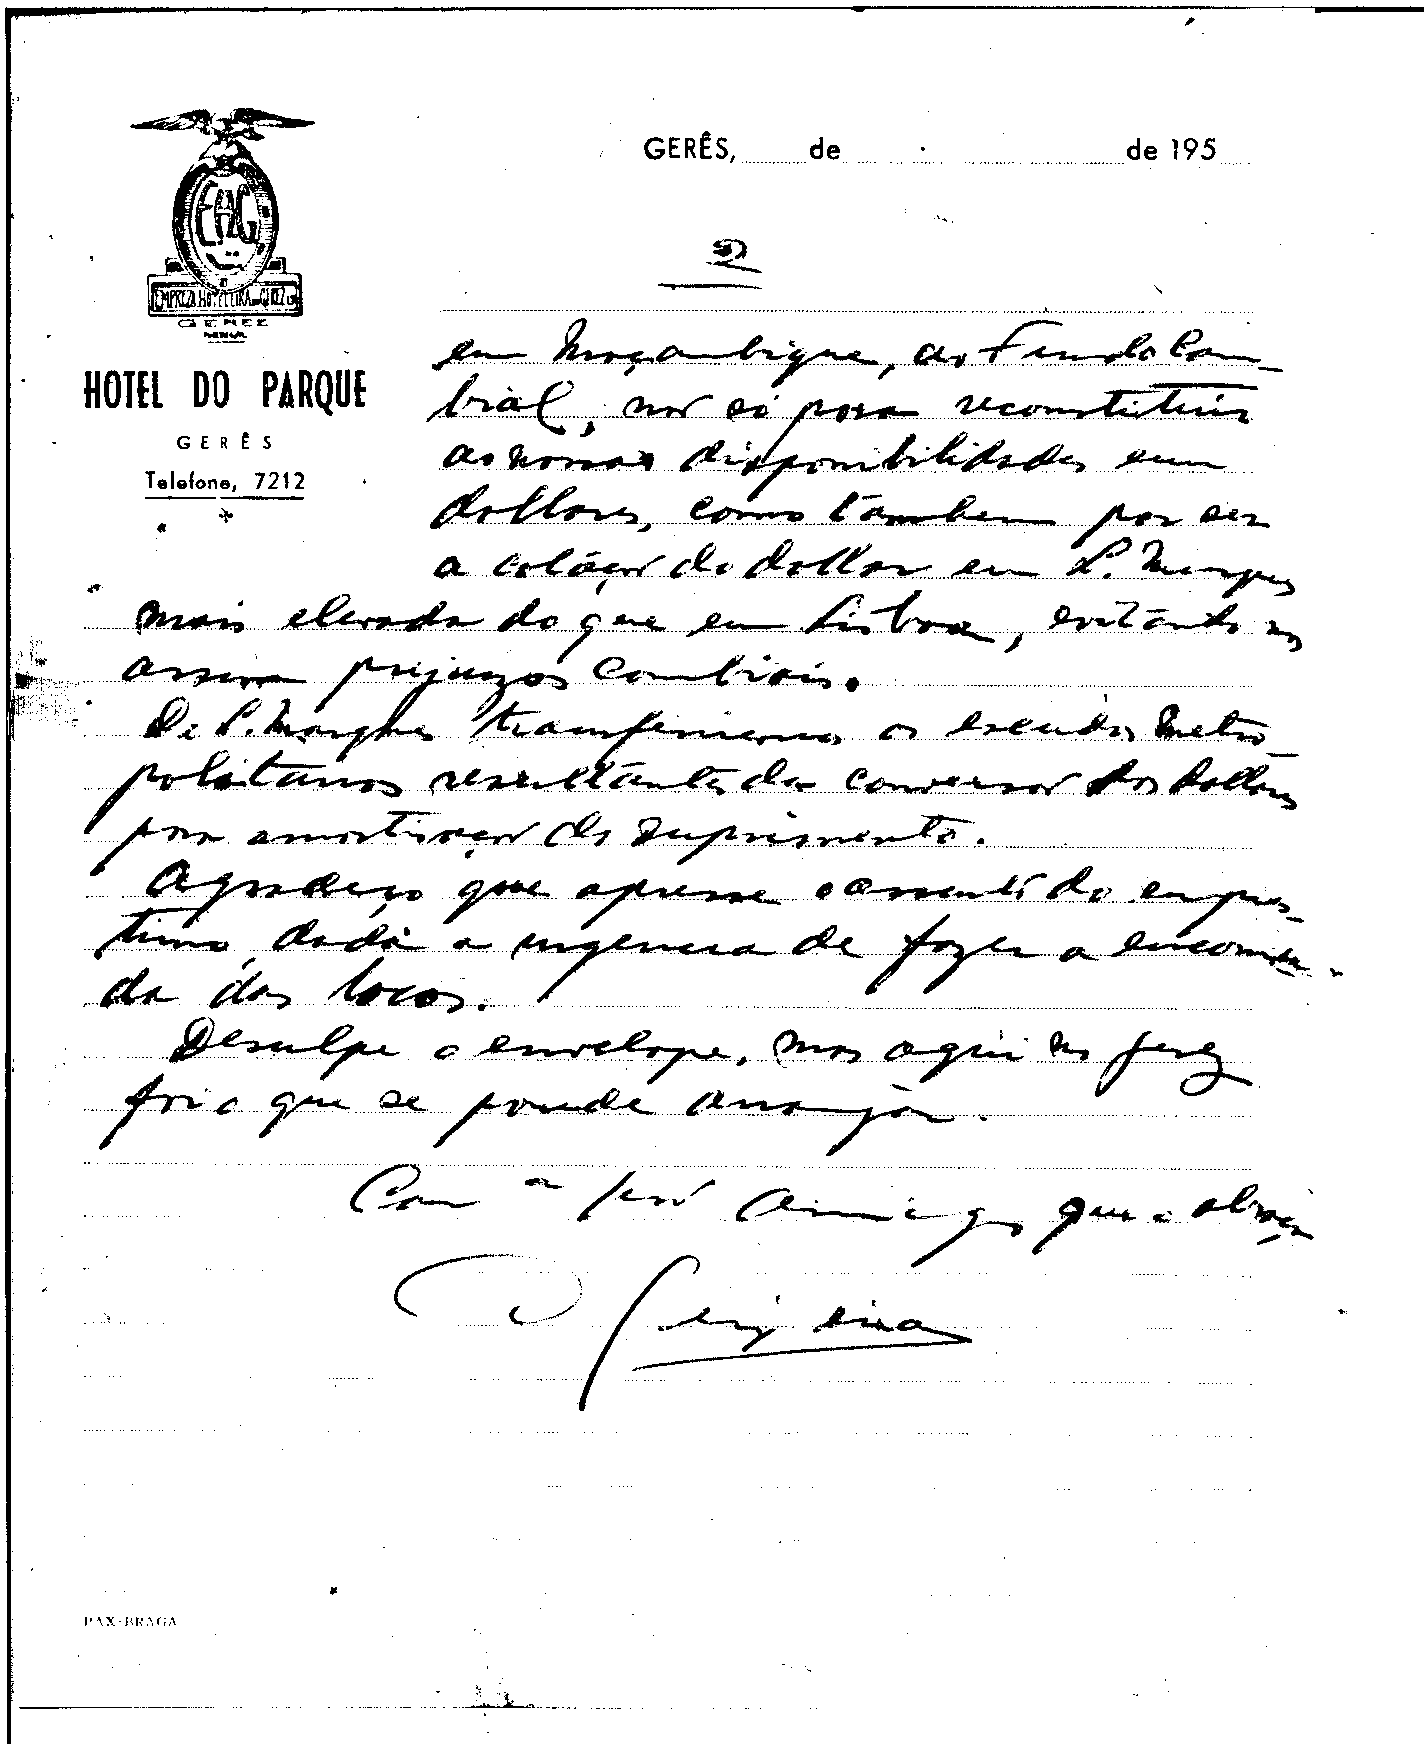 GERÊS, de de 195
EHG
EMPREZA HOTELEIRA DO GEREZ
GEREZ
MINHO
HOTEL DO PARQUE
GERÊS
Telefone, 7212
2
em Moçambique, ao Fundo Cam-
bial, não só para reconstituir
as nossas disponibilidades em
dollares, como tambem por ser
a cotação do dollar em L. Marques
mais elevada do que em Lisboa, evitando-nos
assim prejuizos cambiais.
De L. Marques transferiremos os escudos metro-
politanos resultantes da conversão dos dollares
para amortização do suprimento.
Agradeço que apresse o assunto do empres-
timo, dada a urgencia de fazer a encomen-
da das locos.
Desculpe o envelope, mas aqui no Gerez
foi o que se poude arranjar.
Com a amigo que o abraça
PAX-BRAGA